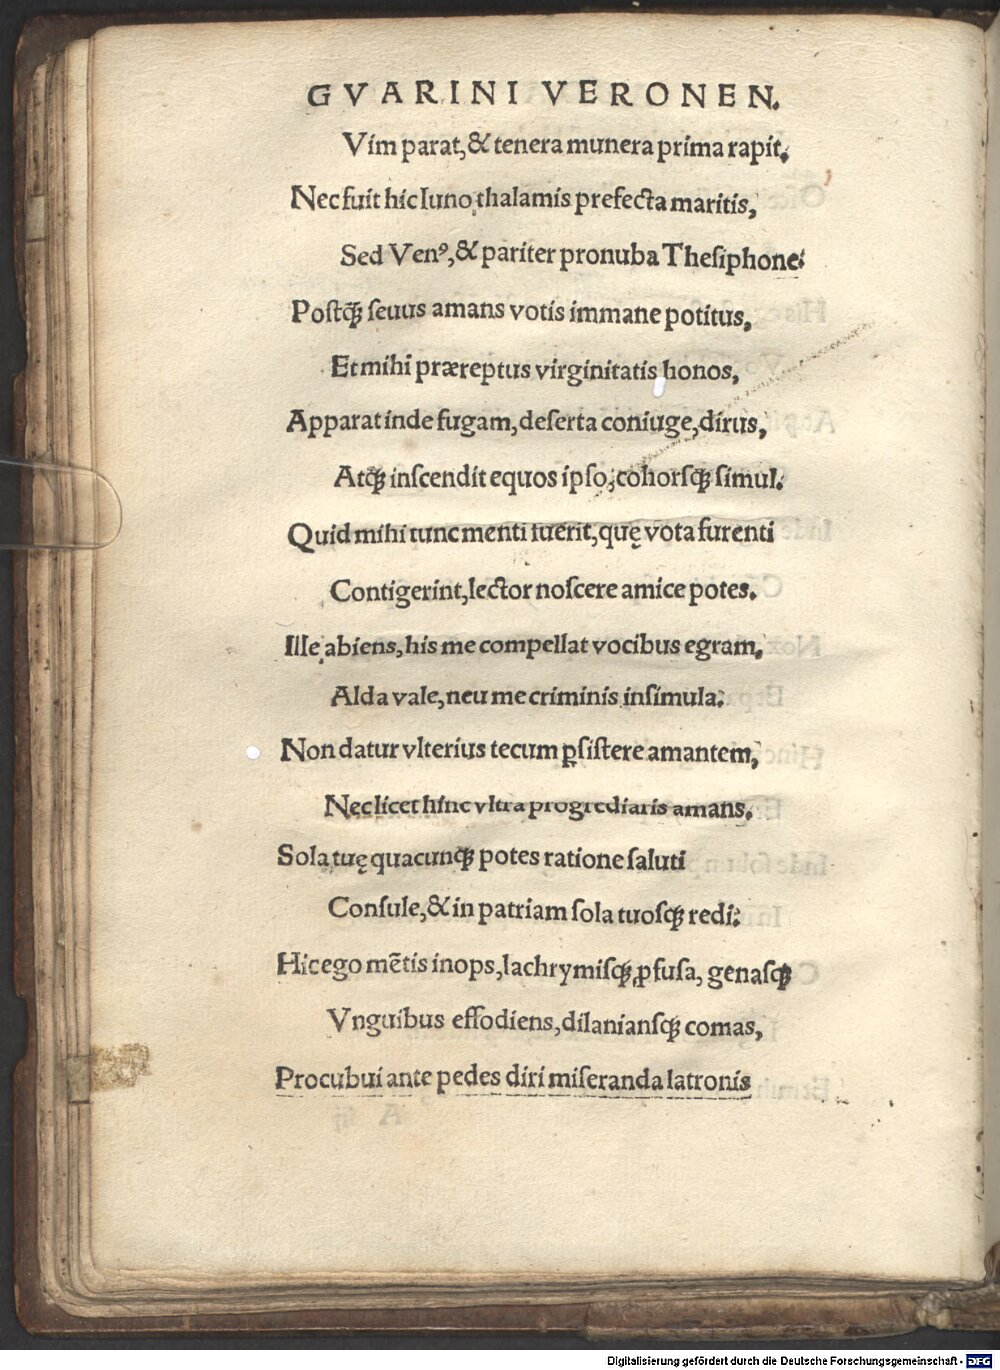 GVARINI VERONEN.
Vim parat, & tenera munera prima rapit.
Nec fuit hic Iuno thalamis prefecta maritis,
Sed Venꝰ, & pariter pronuba Thesiphone:
Postꝙ̃ seuus amans votis immane potitus,
Et mihi præreptus virginitatis honos,
Apparat inde fugam, deserta coniuge, dirus,
Atqꝫ inscendit equos ipso, cohorsqꝫ simul.
Quid mihi tunc menti fuerit, quę vota furenti
Contigerint, lector noscere amice potes.
Ille abiens, his me compellat vocibus egram,
Alda vale, neu me criminis insimula:
Non datur vlterius tecum ꝑsistere amantem,
Nec licet hinc vltra progrediaris amans.
Sola tuę quacunqꝫ potes ratione saluti
Consule, & in patriam sola tuosqꝫ redi:
Hic ego mētis inops, lachrymisqꝫ ꝑfusa, genasqꝫ
Vnguibus effodiens, dilaniansqꝫ comas,
Procubui ante pedes diri miseranda latronis
Digitalisierung gefördert durch die Deutsche Forschungsgemeinschaft - DFG